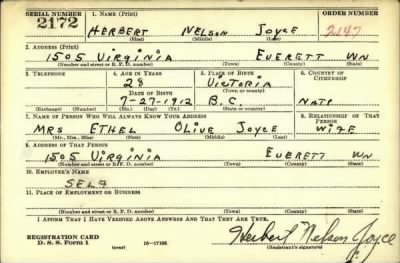 SERIAL NUMBER 1. NAME (Print) ORDER NUMBER
2172 HERBERT NELSON JOYCE 2147
(First) (Middle) (Last)
2. ADDRESS (Print)
1505 VIRGINIA EVERETT WN
(Number and street or R. F. D. number) (Town) (County) (State)
3. TELEPHONE 4. AGE IN YEARS 5. PLACE OF BIRTH 6. COUNTRY OF CITIZENSHIP
28 VICTORIA
DATE OF BIRTH (Town or county)
7-27-1912 B.C.
(Exchange) (Number) (Mo.) (Day) (Yr.) (State or country)
7. NAME OF PERSON WHO WILL ALWAYS KNOW YOUR ADDRESS 8. RELATIONSHIP OF THAT PERSON
MRS ETHEL OLIVE JOYCE WIFE
(Mr., Mrs., Miss) (First) (Middle) (Last)
9. ADDRESS OF THAT PERSON
1505 VIRGINIA EVERETT WN
(Number and street or R. F. D. number) (Town) (County) (State)
10. EMPLOYER'S NAME
SELF
11. PLACE OF EMPLOYMENT OR BUSINESS
(Number and street or R. F. D. number) (Town) (County) (State)
I AFFIRM THAT I HAVE VERIFIED ABOVE ANSWERS AND THAT THEY ARE TRUE.
REGISTRATION CARD
D. S. S. Form 1 (over) 16-17105 Herbert Nelson Joyce
(Registrant's signature)